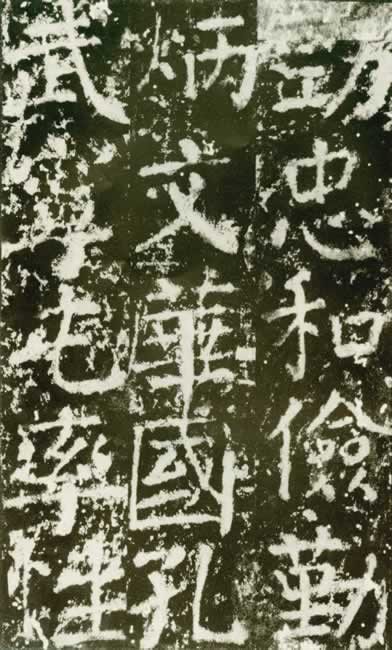 功忠和儉勤
炳文華國孔
武率性